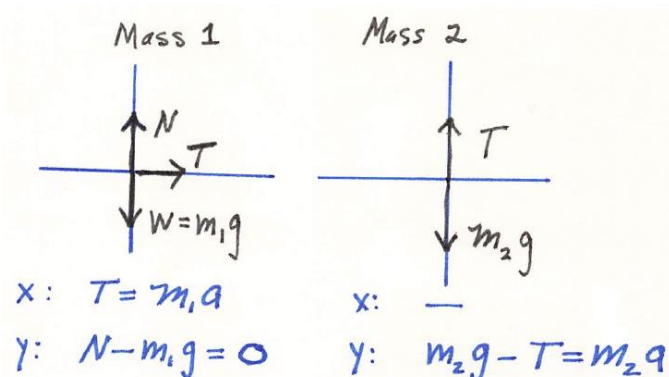 Mass 1
N
T
W=m₁g
x: T=m₁a
y: N-m₁g=0
Mass 2
T
m₂g
x: —
y: m₂g-T=m₂a